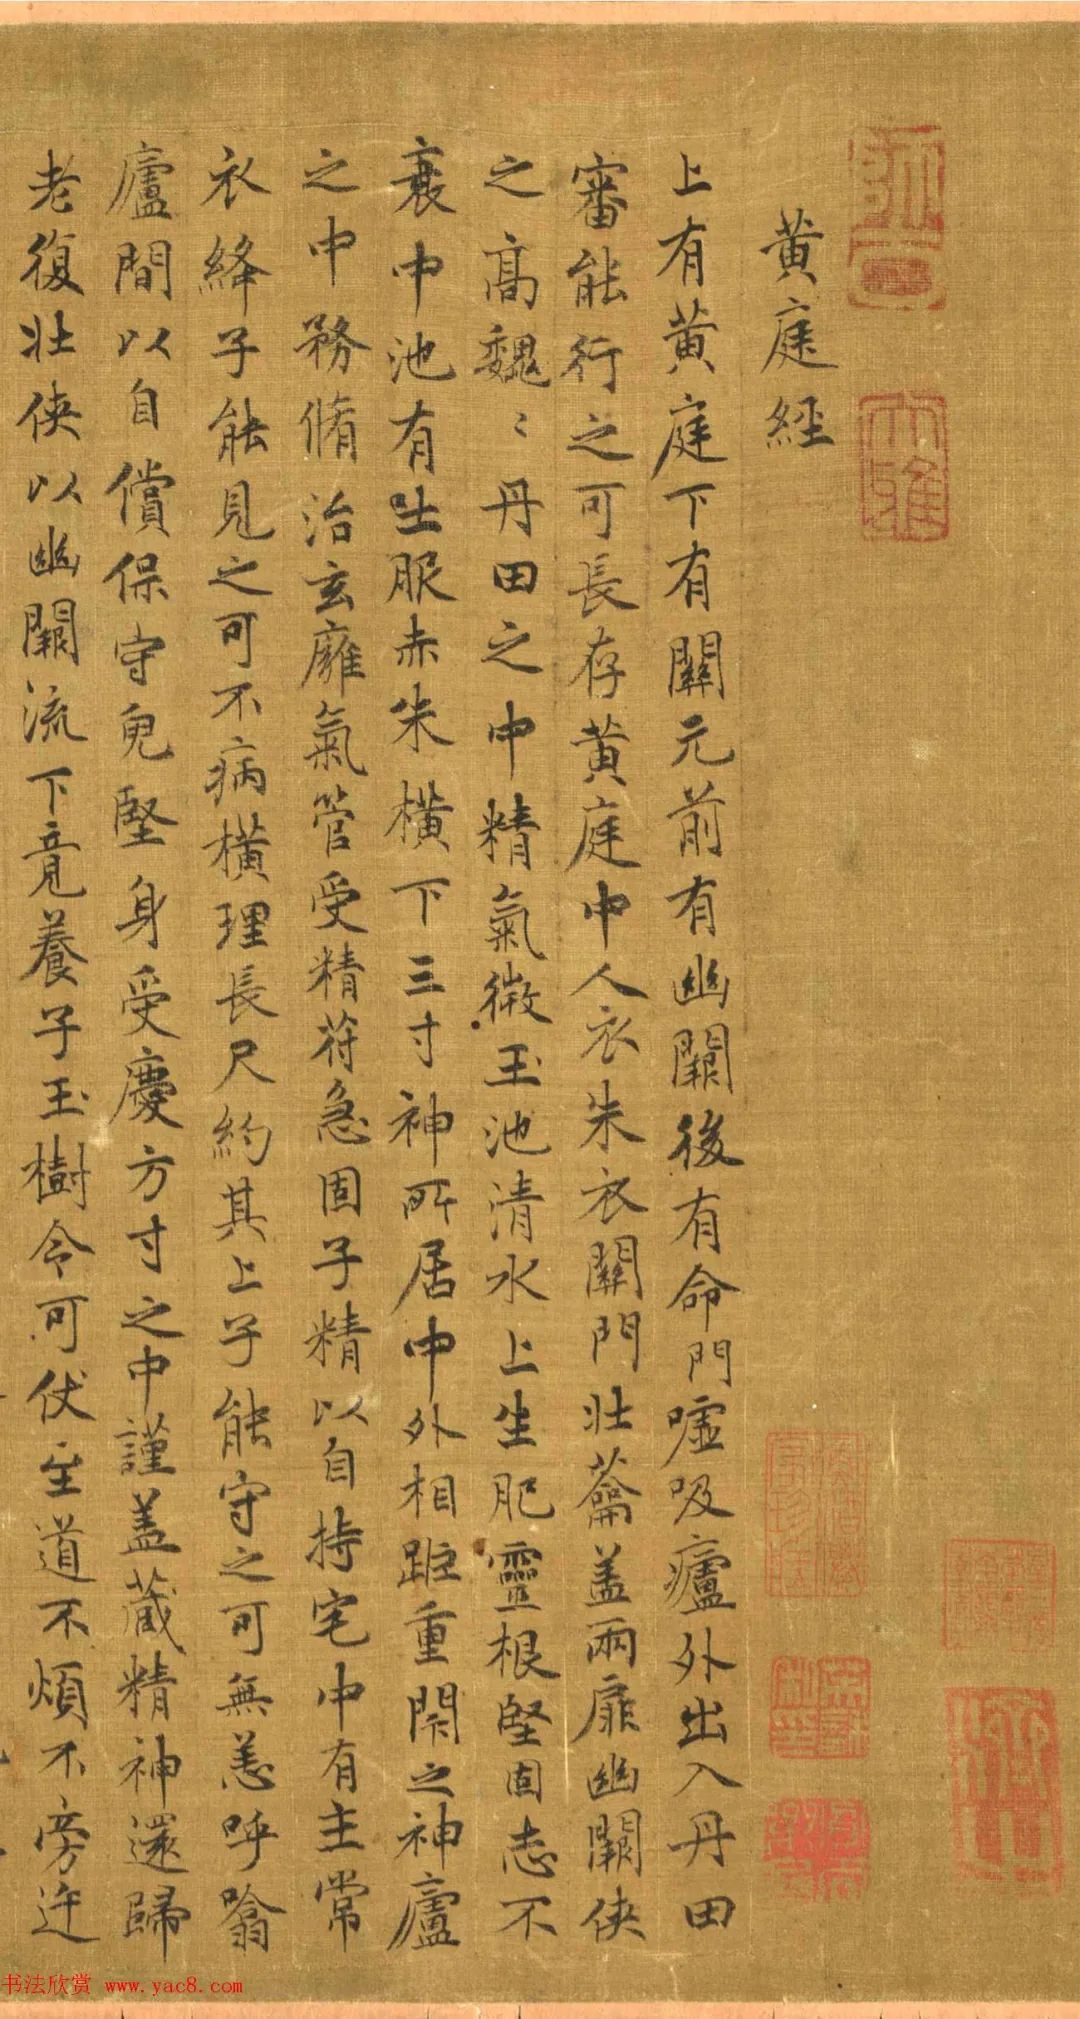 黄庭經
上有黄庭下有關元前有幽闕後有命門嘘吸廬外出入丹田
審能行之可長存黄庭中人衣朱衣關門壮蘥盖兩扉幽闕侠
之高魏〻丹田之中精氣微玉池清水上生肥靈根堅固志不
衰中池有士服赤朱横下三寸神所居中外相距重閇之神廬
之中務脩治玄廱氣管受精苻急固子精以自持宅中有主常
衣絳子能見之可不病横理長尺約其上子能守之可無恙呼噏
廬間以自償保守皃堅身受慶方寸之中謹盖蔵精神還歸
老復壮侠以幽闕流下竟養子玉樹令可伏至道不煩不旁迕
大雅
书法欣赏 www.yac8.com